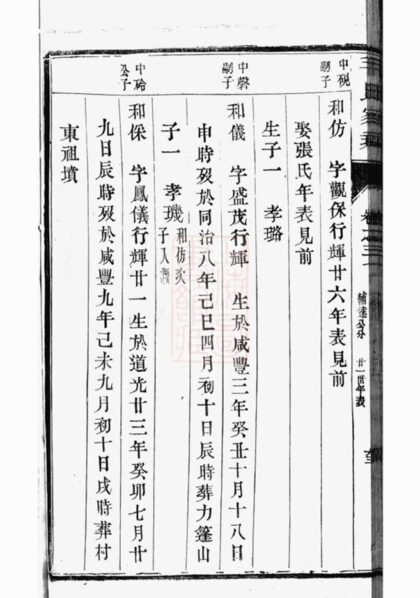 卷之三
廿一世年表
中硯
嗣子
和仿 字觀保行輝廿六年表見前
娶張氏年表見前
生子一 孝璐
中磬
嗣子
和儀 字盛茂行輝 生於咸豐三年癸丑十月十八日
申時歿於同治八年己巳四月初十日辰時葬力篷山
子一 孝璣 和仿次
子入
中
公子
和保 字鳳儀行輝廿一生於道光廿三年癸卯七月廿
九日辰時歿於咸豐九年己未九月初十日戌時葬村
東祖墳